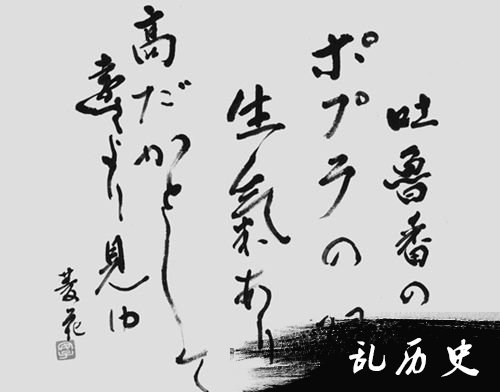 吐魯番の
ポプラの
生氣あり
高だかとして
遠くより見ゆ
菱花
乱历史